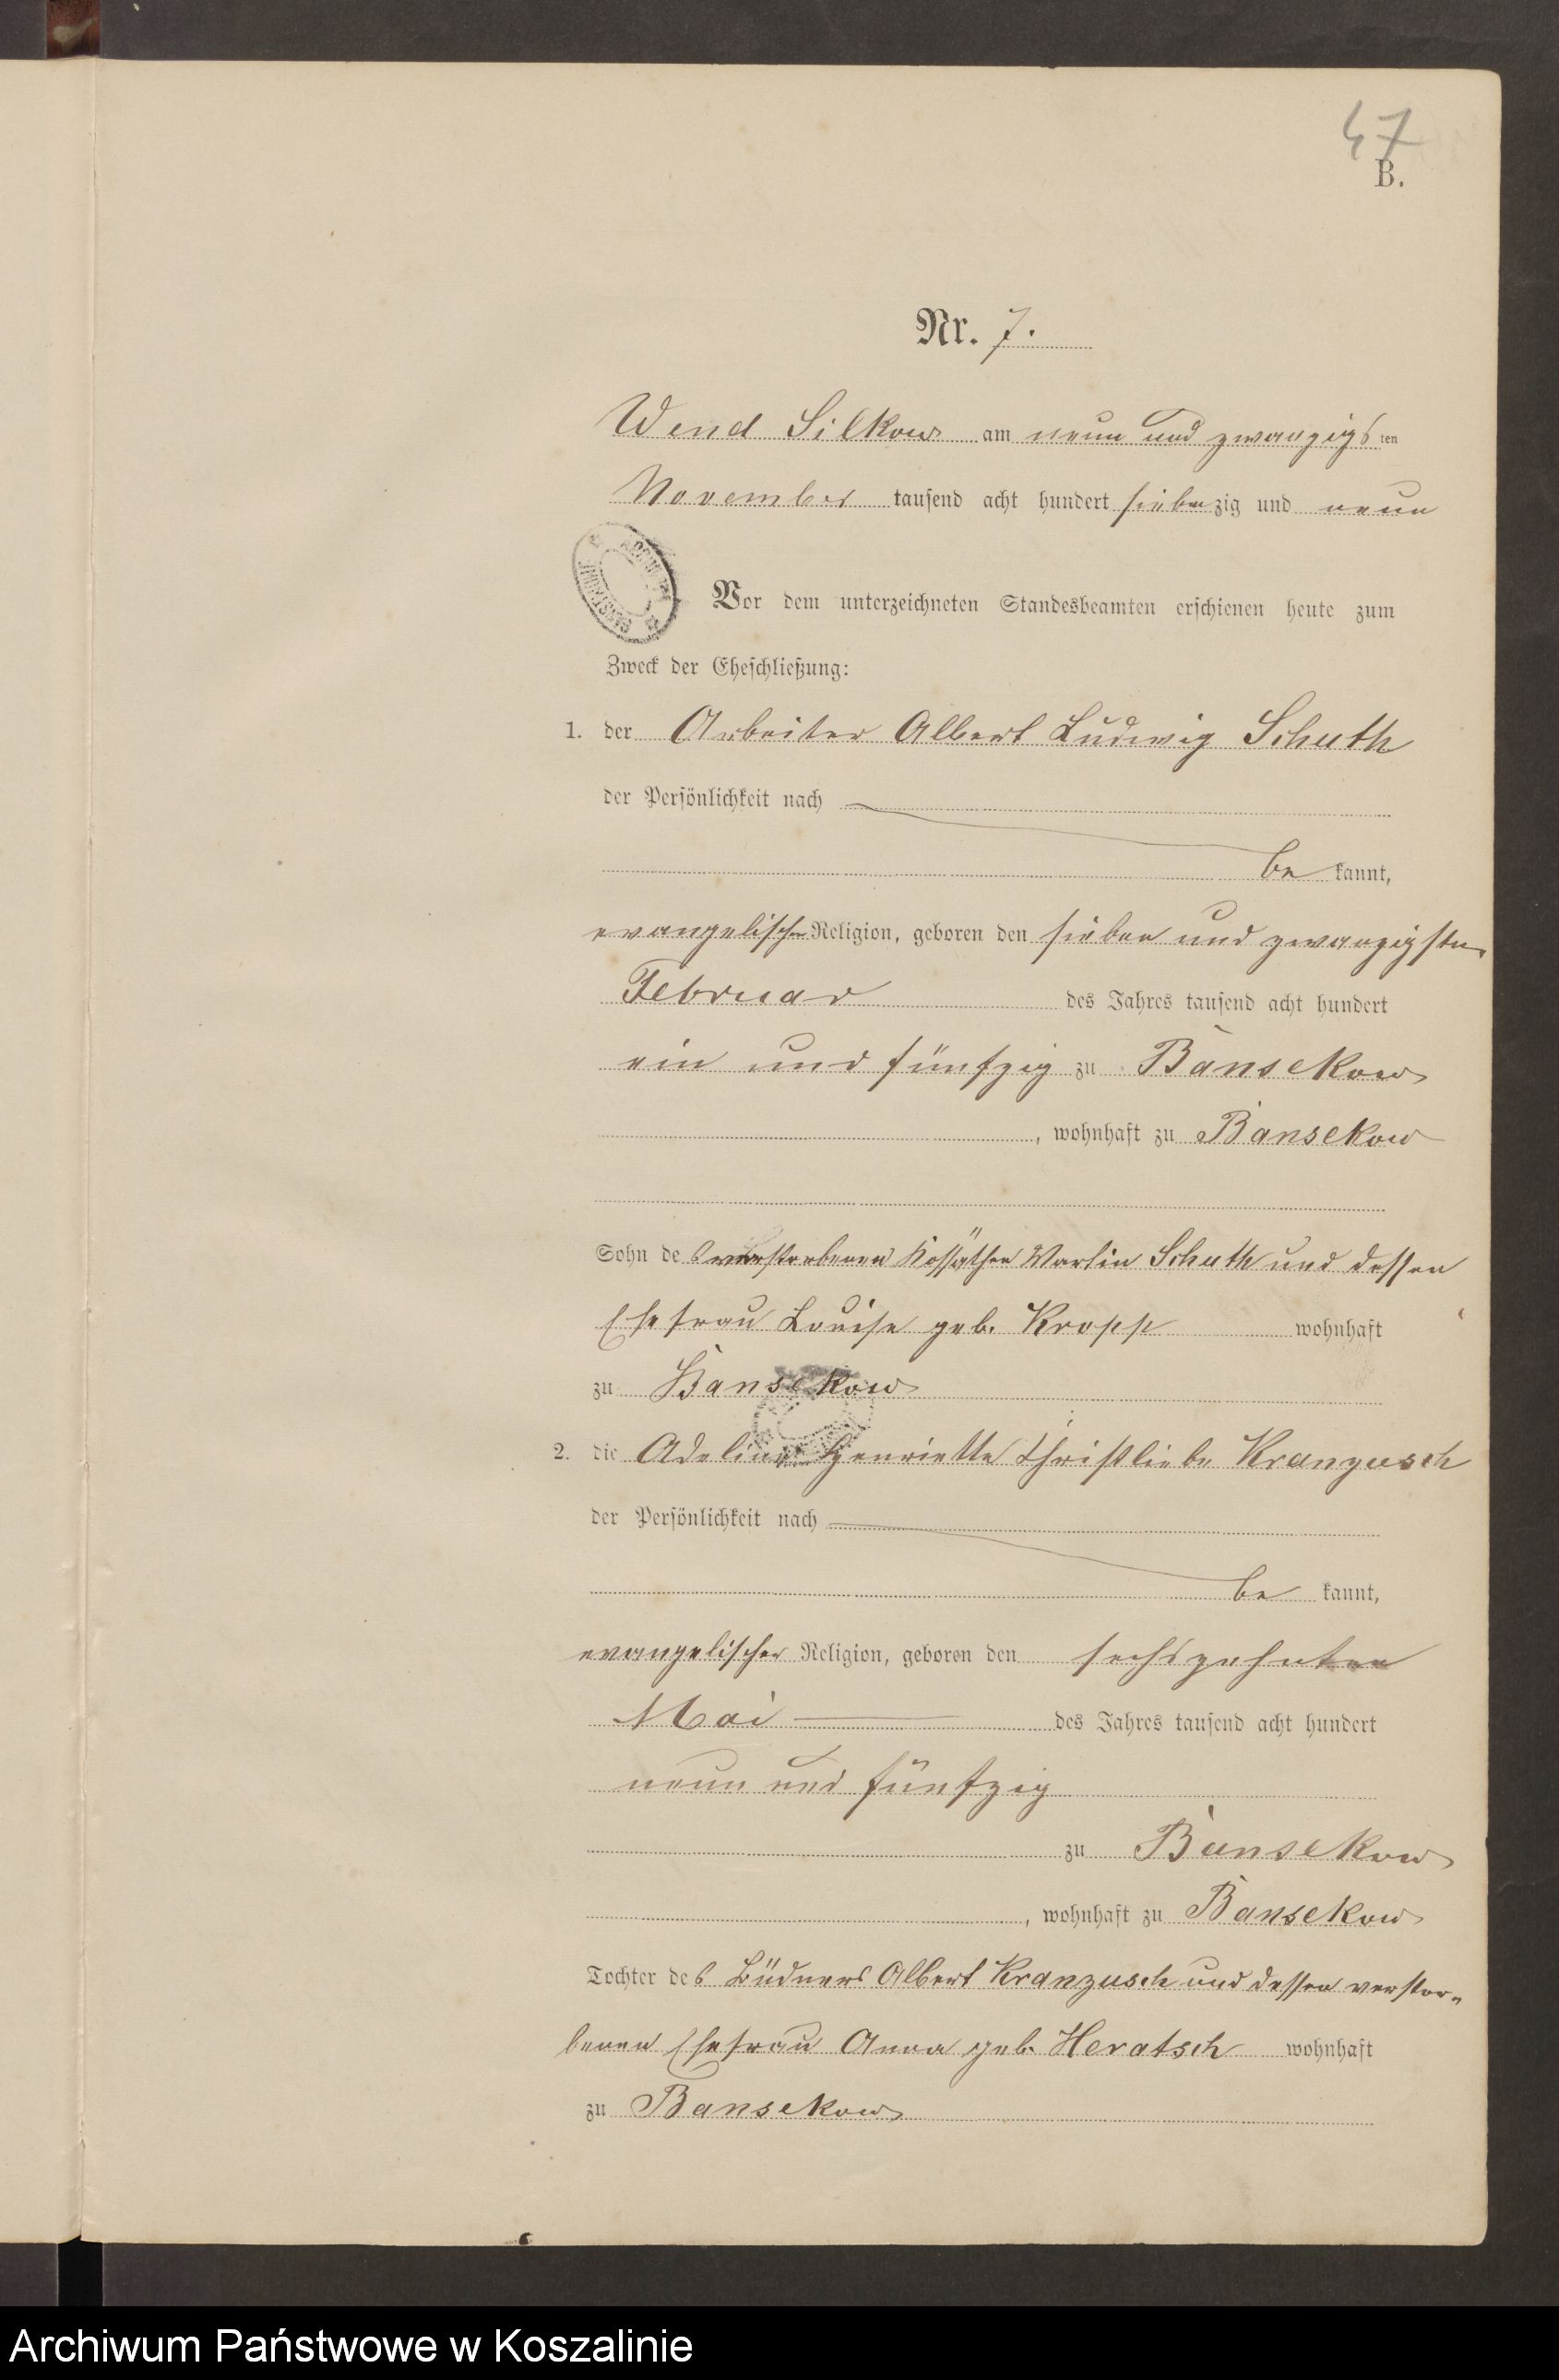 47
B.
Nr. 7.
Wend Silkow am neun und zwanzigsten
November tausend acht hundert siebenzig und neun
Vor dem unterzeichneten Standesbeamten erschienen heute zum
Zweck der Eheschließung:
1. der Arbeiter Albert Ludwig Schuth
der Persönlichkeit nach
be kannt,
evangelischer Religion, geboren den sieben und zwanzigsten
Februar des Jahres tausend acht hundert
ein und fünfzig zu Bansekow
, wohnhaft zu Bansekow
Sohn des verstorbenen Kossäthen Martin Schuth und dessen
Ehefrau Louise geb. Kropp wohnhaft
zu Bansekow
2. die Adeline Henriette Christliebe Kranzusch
der Persönlichkeit nach
be kannt,
evangelischer Religion, geboren den sechszehnten
Mai des Jahres tausend acht hundert
neun und fünfzig
zu Bansekow
, wohnhaft zu Bansekow
Tochter des Büdners Albert Kranzusch und dessen verstor-
benen Ehefrau Anna geb. Heratsch wohnhaft
zu Bansekow
Archiwum Państwowe w Koszalinie